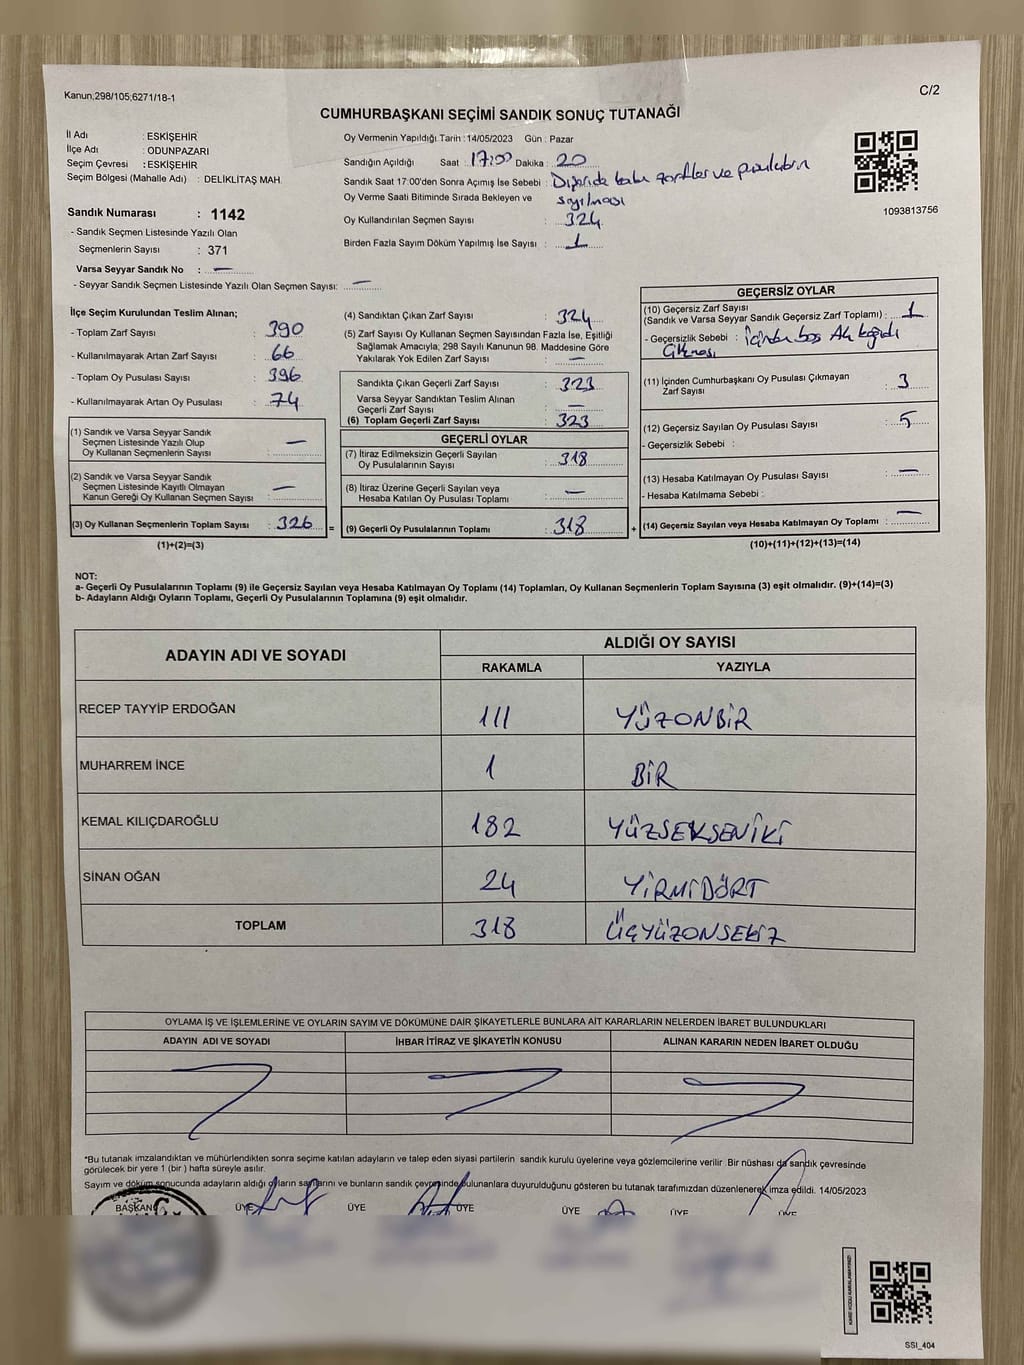 Kanun;298/105;6271/18-1
C/2
CUMHURBAŞKANI SEÇİMİ SANDIK SONUÇ TUTANAĞI
İl Adı : ESKİŞEHİR
İlçe Adı : ODUNPAZARI
Seçim Çevresi : ESKİŞEHİR
Seçim Bölgesi (Mahalle Adı) : DELİKLİTAŞ MAH.
Sandık Numarası : 1142
- Sandık Seçmen Listesinde Yazılı Olan
Seçmenlerin Sayısı : 371
Varsa Seyyar Sandık No : —
- Seyyar Sandık Seçmen Listesinde Yazılı Olan Seçmen Sayısı: —
Oy Vermenin Yapıldığı Tarih : 14/05/2023 Gün : Pazar
Sandığın Açıldığı Saat 17:00 Dakika : 20
Sandık Saat 17:00'den Sonra Açılmış İse Sebebi : Dışarıda kalan zarflar ve pusulaların
sayılması
Oy Verme Saati Bitiminde Sırada Bekleyen ve
Oy Kullandırılan Seçmen Sayısı : 324
Birden Fazla Sayım Döküm Yapılmış İse Sayısı : 1
1093813756
İlçe Seçim Kurulundan Teslim Alınan;
- Toplam Zarf Sayısı : 390
- Kullanılmayarak Artan Zarf Sayısı : 66
- Toplam Oy Pusulası Sayısı : 396
- Kullanılmayarak Artan Oy Pusulası : 74
(1) Sandık ve Varsa Seyyar Sandık
Seçmen Listesinde Yazılı Olup
Oy Kullanan Seçmenlerin Sayısı : —
(2) Sandık ve Varsa Seyyar Sandık
Seçmen Listesinde Kayıtlı Olmayan
Kanun Gereği Oy Kullanan Seçmen Sayısı : —
(3) Oy Kullanan Seçmenlerin Toplam Sayısı : 326 =
(1)+(2)=(3)
(4) Sandıktan Çıkan Zarf Sayısı : 324
(5) Zarf Sayısı Oy Kullanan Seçmen Sayısından Fazla İse, Eşitliği
Sağlamak Amacıyla; 298 Sayılı Kanunun 98. Maddesine Göre
Yakılarak Yok Edilen Zarf Sayısı : —
Sandıkta Çıkan Geçerli Zarf Sayısı : 323
Varsa Seyyar Sandıktan Teslim Alınan
Geçerli Zarf Sayısı : —
(6) Toplam Geçerli Zarf Sayısı : 323
GEÇERLİ OYLAR
(7) İtiraz Edilmeksizin Geçerli Sayılan
Oy Pusulalarının Sayısı : 318
(8) İtiraz Üzerine Geçerli Sayılan veya
Hesaba Katılan Oy Pusulası Toplamı : —
(9) Geçerli Oy Pusulalarının Toplamı : 318 +
GEÇERSİZ OYLAR
(10) Geçersiz Zarf Sayısı
(Sandık ve Varsa Seyyar Sandık Geçersiz Zarf Toplamı) : 1
- Geçersizlik Sebebi : İçinden boş Ak kağıdı
çıkması
(11) İçinden Cumhurbaşkanı Oy Pusulası Çıkmayan
Zarf Sayısı : 3
(12) Geçersiz Sayılan Oy Pusulası Sayısı : 5
- Geçersizlik Sebebi :
(13) Hesaba Katılmayan Oy Pusulası Sayısı : —
- Hesaba Katılmama Sebebi :
(14) Geçersiz Sayılan veya Hesaba Katılmayan Oy Toplamı : —
(10)+(11)+(12)+(13)=(14)
NOT:
a- Geçerli Oy Pusulalarının Toplamı (9) ile Geçersiz Sayılan veya Hesaba Katılmayan Oy Toplamı (14) Toplamları, Oy Kullanan Seçmenlerin Toplam Sayısına (3) eşit olmalıdır. (9)+(14)=(3)
b- Adayların Aldığı Oyların Toplamı, Geçerli Oy Pusulalarının Toplamına (9) eşit olmalıdır.
ADAYIN ADI VE SOYADI
ALDIĞI OY SAYISI
RAKAMLA YAZIYLA
RECEP TAYYİP ERDOĞAN 111 YÜZONBİR
MUHARREM İNCE 1 BİR
KEMAL KILIÇDAROĞLU 182 YÜZSEKSENİKİ
SİNAN OĞAN 24 YİRMİDÖRT
TOPLAM 318 ÜÇYÜZONSEKİZ
OYLAMA İŞ VE İŞLEMLERİNE VE OYLARIN SAYIM VE DÖKÜMÜNE DAİR ŞİKAYETLERLE BUNLARA AİT KARARLARIN NELERDEN İBARET BULUNDUKLARI
ADAYIN ADI VE SOYADI İHBAR İTİRAZ VE ŞİKAYETİN KONUSU ALINAN KARARIN NEDEN İBARET OLDUĞU
*Bu tutanak imzalandıktan ve mühürlendikten sonra seçime katılan adayların ve talep eden siyasi partilerin sandık kurulu üyelerine veya gözlemcilerine verilir. Bir nüshası da sandık çevresinde
görülecek bir yere 1 (bir) hafta süreyle asılır.
Sayım ve döküm sonucunda adayların aldığı oyların sayılarını ve bunların sandık çevresinde bulunanlara duyurulduğunu gösteren bu tutanak tarafımızdan düzenlenerek imza edildi. 14/05/2023
BAŞKAN ÜYE ÜYE ÜYE ÜYE ÜYE ÜYE
SSI_404